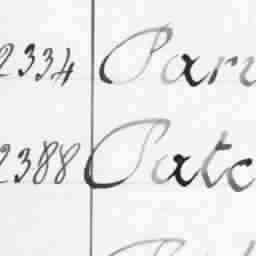 2334 Paru
2388 Patc